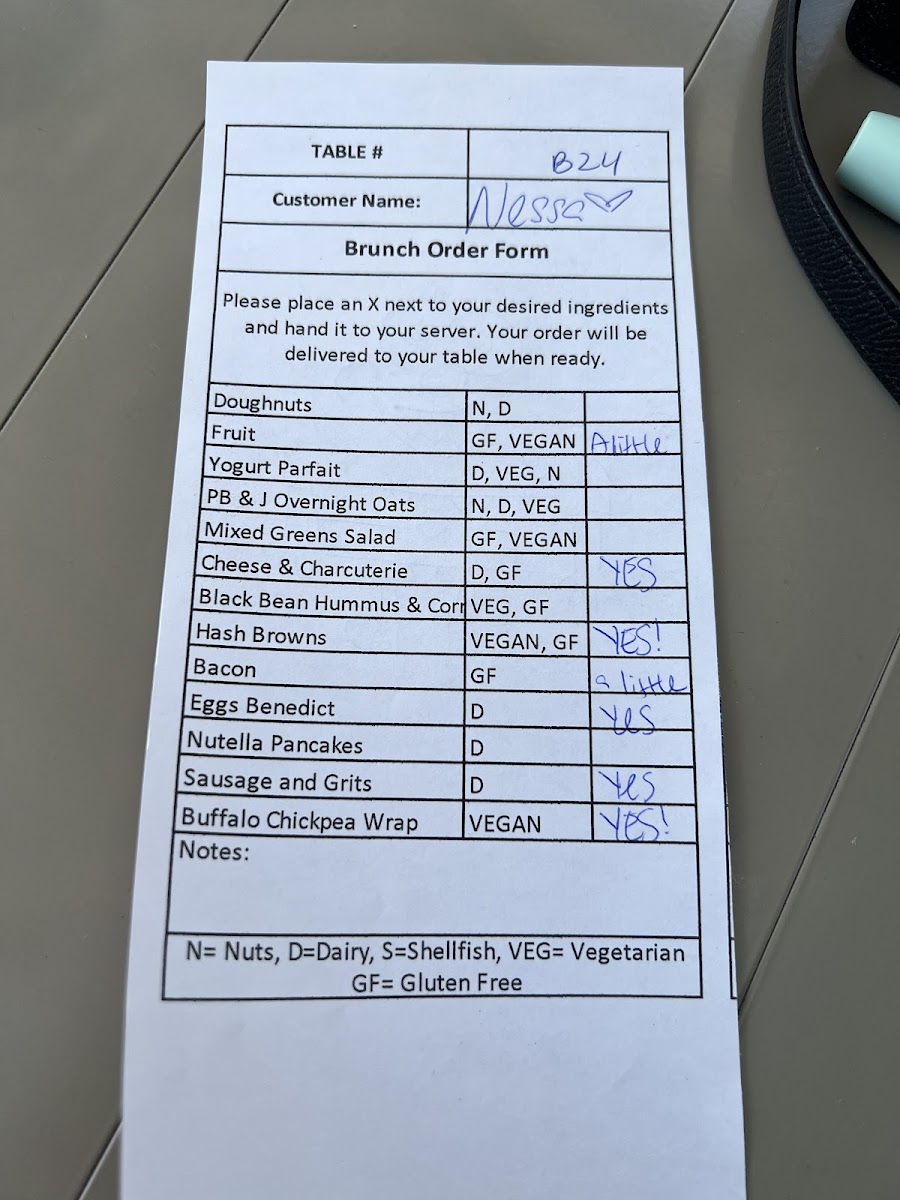 TABLE # B24
Customer Name: Nessa
Brunch Order Form
Please place an X next to your desired ingredients
and hand it to your server. Your order will be
delivered to your table when ready.
Doughnuts N, D
Fruit GF, VEGAN A little
Yogurt Parfait D, VEG, N
PB & J Overnight Oats N, D, VEG
Mixed Greens Salad GF, VEGAN
Cheese & Charcuterie D, GF YES
Black Bean Hummus & Corn VEG, GF
Hash Browns VEGAN, GF YES!
Bacon GF a little
Eggs Benedict D Yes
Nutella Pancakes D
Sausage and Grits D Yes
Buffalo Chickpea Wrap VEGAN YES!
Notes:
N= Nuts, D=Dairy, S=Shellfish, VEG= Vegetarian
GF= Gluten Free